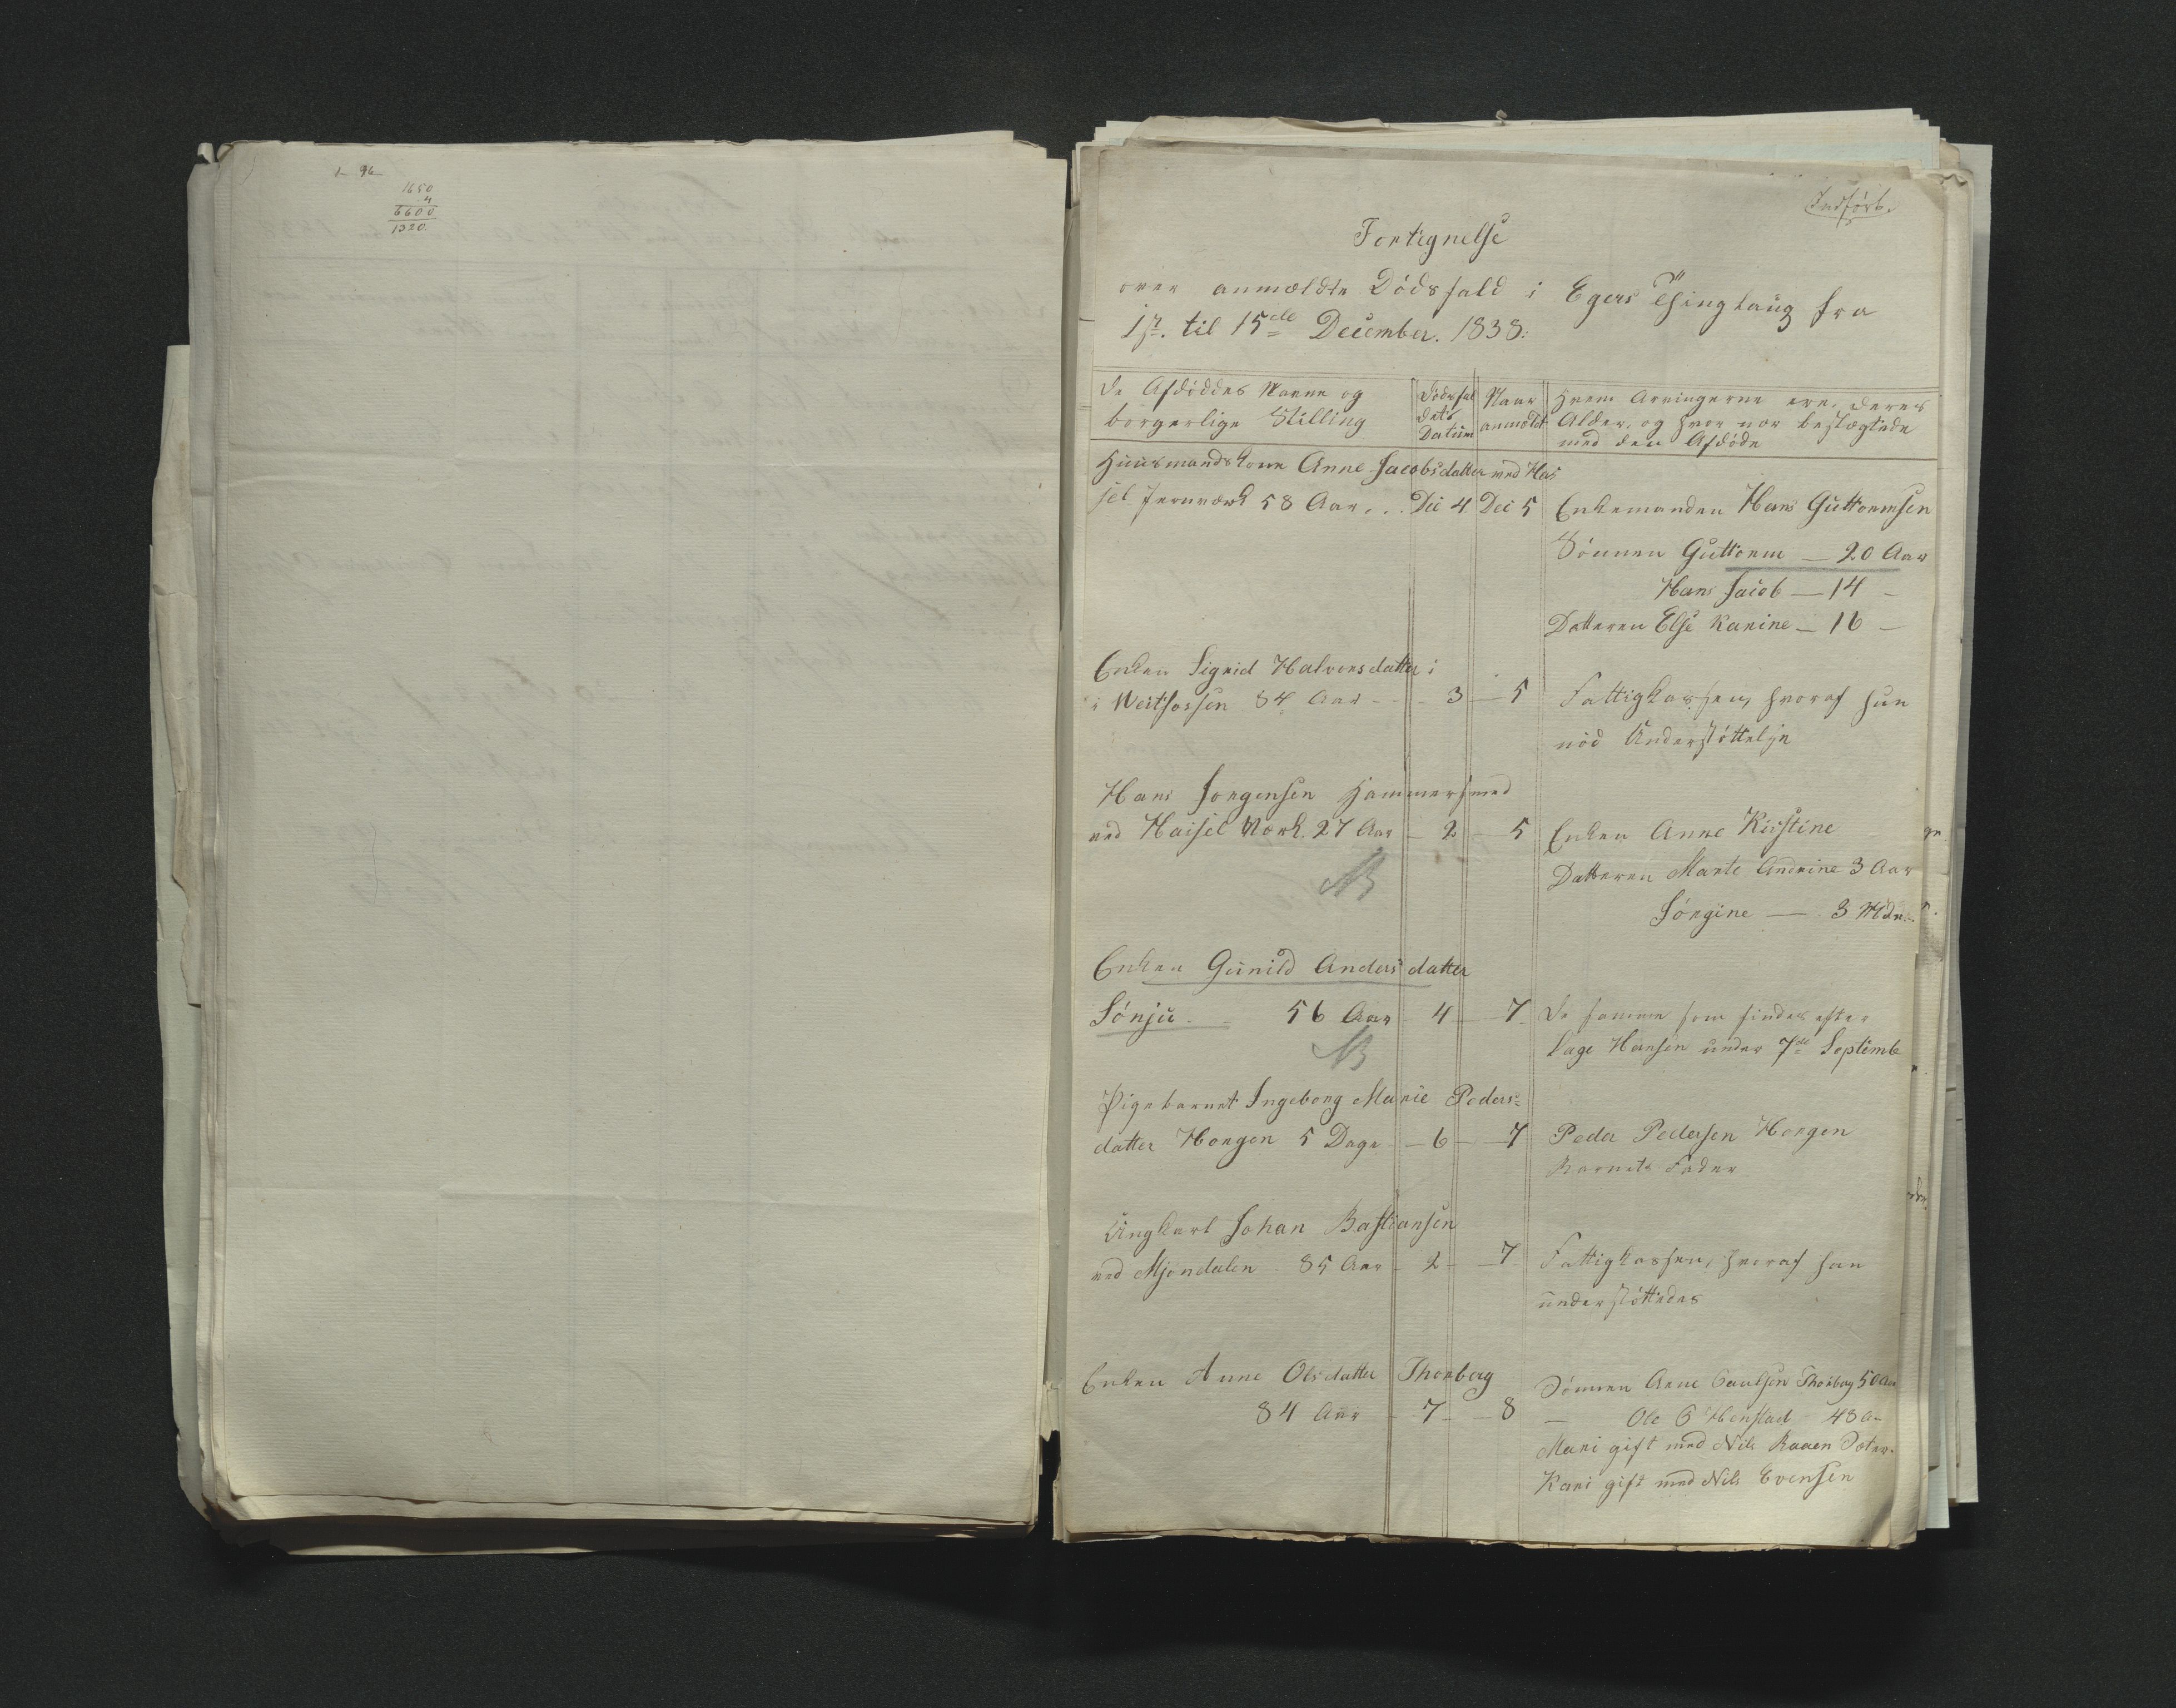 1 96
1650
4
6600
1320.
Indført.
Fortegnelse
over anmældte Dødsfald i Egers Thinglaug fra
1ste til 15de December. 1838.
De Afdøddes Navne og
borgerlige Stilling
Dødsfal
dets
Datum
Naar
anmældt
Hvem Arvingerne ere, deres
Alder, og hvor nær beslægtede
med den Afdøde
Huusmandskone Anne Jacobsdatter ved Has
sel Jernværk 58 Aar . . . Dec 4 Dec 5 Enkemanden Hans Guttormsen
Sønnen Guttorm — 20 Aar
Hans Jacob — 14 -
Datteren Else Karine — 16 -
Enken Sigrid Halvorsdatter i
i Weitfossen 84 Aar - - - 3 — 5 Fattigkassen, hvoraf hun
nød Understøttelse
Hans Jorgensen Hammersmed
ved Hassel Værk. 27 Aar — 2 — 5 Enken Anne Kirstine
Datteren Marte Andrine 3 Aar
Jörgine — 3 Mdr.
NB
Enken Gunild Anders datter
Sönju - 56 Aar 4 — 7 De samme som findes efter
Aage Hansen under 7de Septemb
NB
Pigebarnet Ingeborg Marie Peders=
datter Horgen 5 Dage — 6 — 7 Peder Pedersen Horgen
Barnets Fader
Ungkarl Johan Bastiansen
ved Mjøndalen 85 Aar - 2 - 7 Fattigkassen, hvoraf han
understøttedes
Enken Anne Olsdatter Thorberg
84 Aar - 7 - 8
Sønnen Arne Paulsen Thorberg 50 Aar
— Ole P Henstad 48 a-
Mari gift med Nils Raaen Døtre.
Kari gift med Nils Evensen